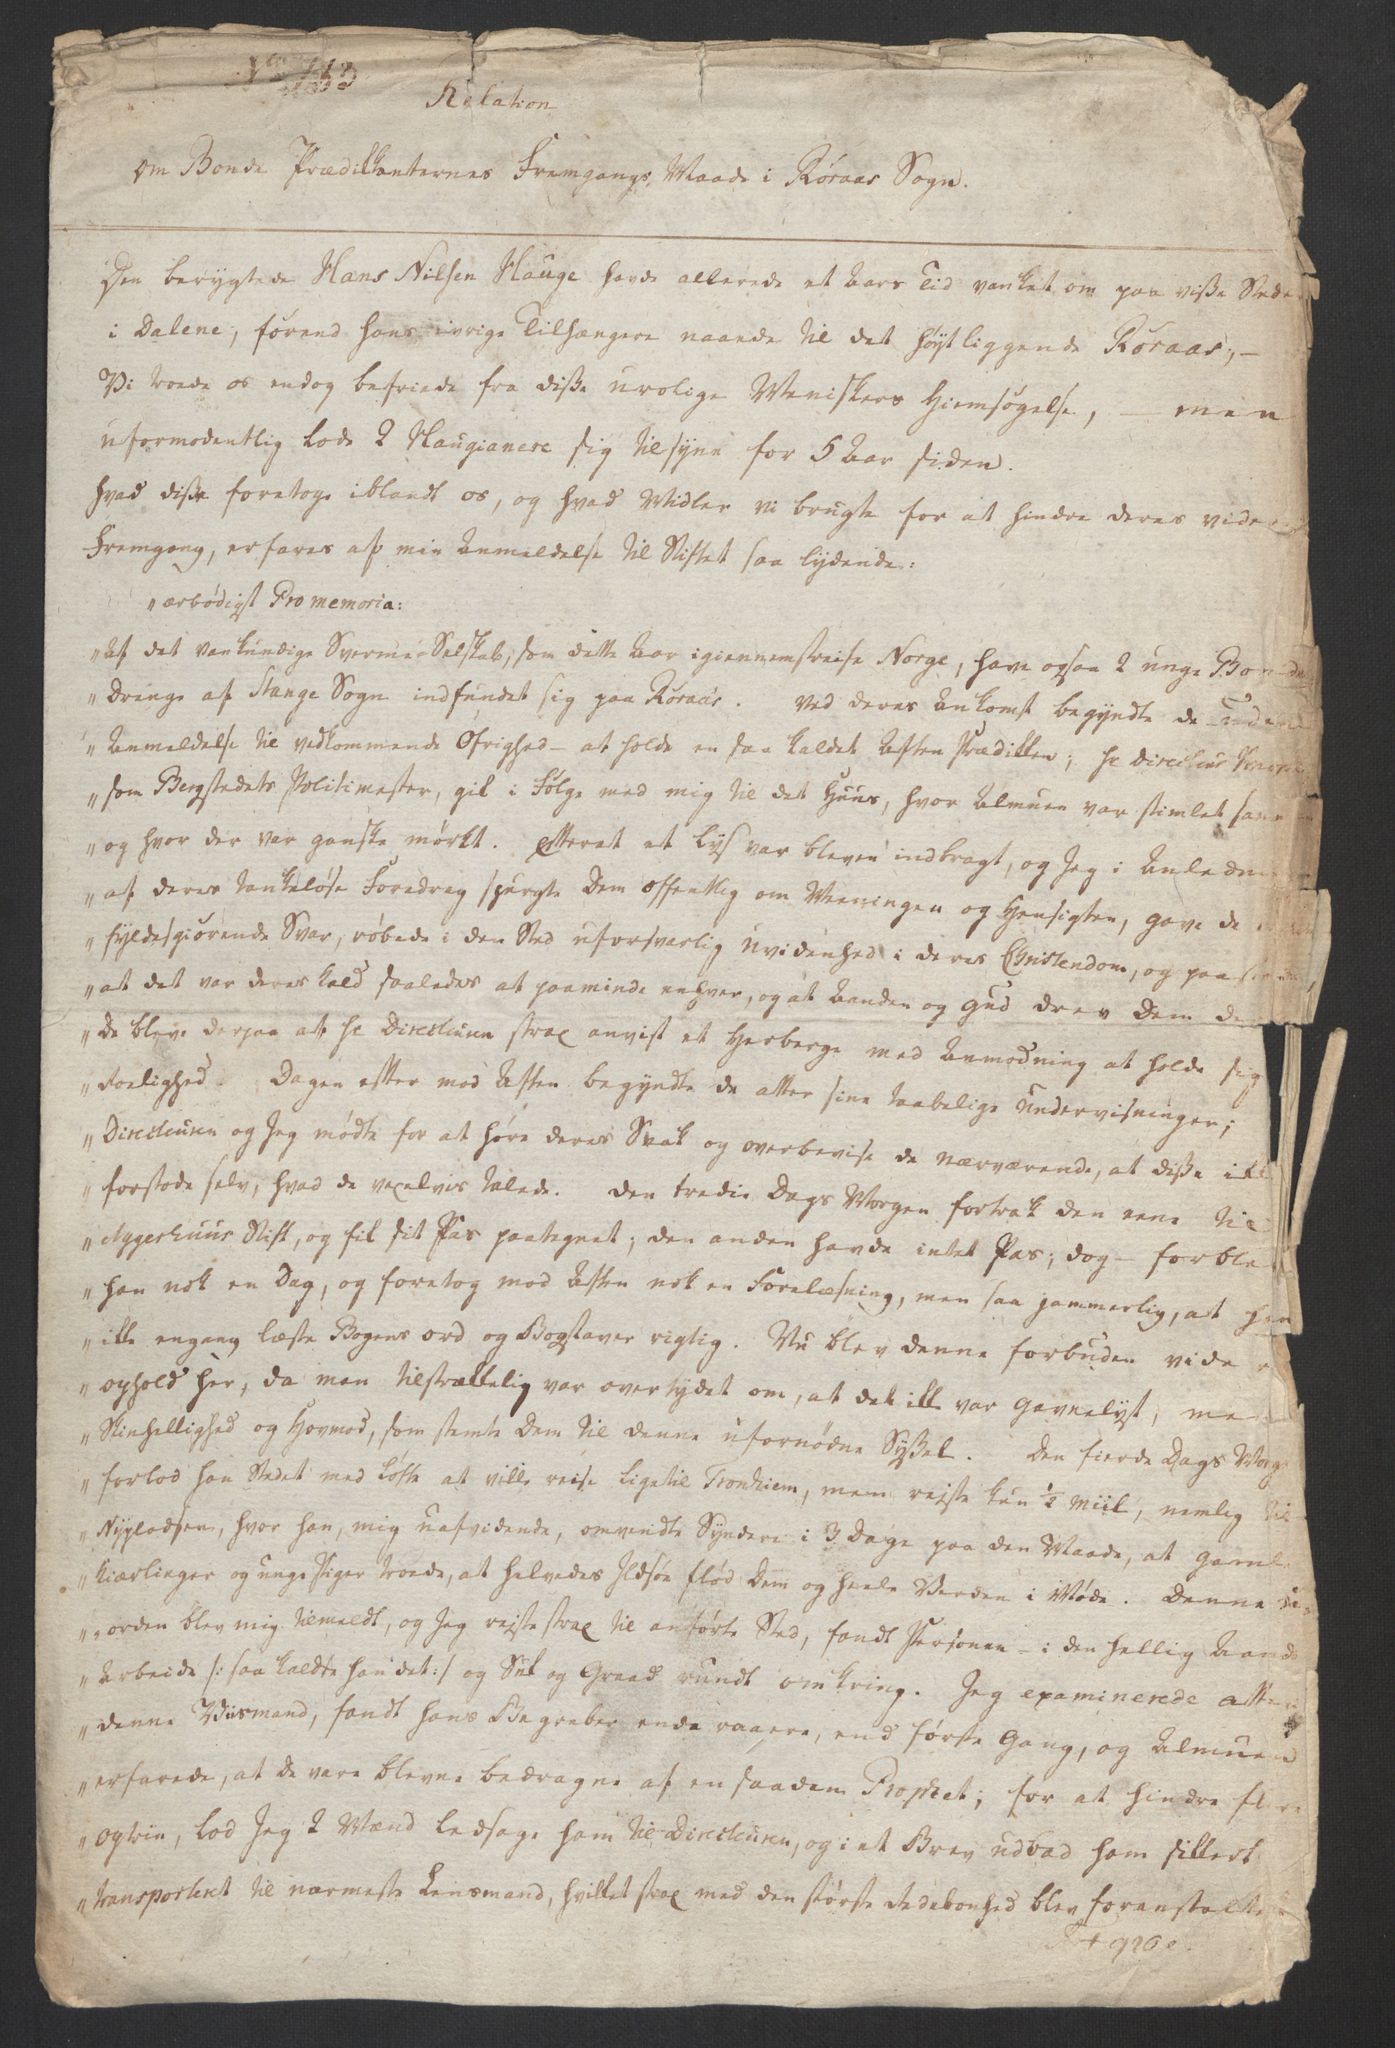 Relation
om Bonde Prædikanternes Fremgangs Maade i Røraas Sogn.
Den berygtede Hans Nilsen Hauge havde allerede et Aars Tid vanket om paa visse Stede
i Dalene, førend hans ivrige Tilhængere naaede til det høyt liggende Røraas; –
Vi troede os endog befriede fra disse urolige Meniskers Hiemsøgelse, – men
uformodentlig lode 2 Haugianere sig tilsyne for 5 Aar siden.
hvad disse foretoge iblandt os, og hvad Midler vi brugte for at hindre deres videre
Fremgang, erfares af min Anmeldelse til Stiftet saa lydende:
"ærbødigst Promemoria:
"Af det vankundige Svermer Selskab, som dette Aar igiennemstreife Norge, have ogsaa 2 unge Bonde
"Drenge af Stange Sogn indfundet sig paa Røraas. Ved deres Ankomst begyndte de – uden
"Anmeldelse til vedkommende Øfrighed – at holde en saa kaldet Aften Prædiken; Hr Directeur
"som Bergstedets Politimester, gik i Følge med mig til det Huus, hvor Almuen var stimlet sam
"og hvor der var ganske mørkt. Efterat et Lys var bleven indbragt, og Jeg i Anledn
"af deres tankeløse Foredrag spurgte Dem offentlig om Meeningen og Hensigten, gave de
"fyldestgiørende Svar, røbede i den Sted uforsvarlig uvidenhed i deres Christendom, og paastode,
"at det var deres Kald saaledes at paaminde enhver, og at Aanden og Gud drev Dem
"De bleve derpaa af Hr Directeuren strax anvist et Herberge med Anmodning at holde sig
"Roelighed. Dagen efter mod Aften begyndte de atter sine taabelige Undervisninger;
"Directeuren og Jeg mødte for at høre deres Snak og overbevise de nærværende, at disse ikke
"forstode selv, hvad de vexelvis talede. Den tredie Dags Morgen fortrak den eene til
"Aggershuus Stift, og fik sit Pas paategnet; den anden havde intet Pas; dog – forble
"han nok en Dag, og foretog mod Aften nok en Forelæsning, men saa jammerlig, at han
"ikke engang læste Bogens ord og Bogstaver rigtig. Nu blev denne forbuden videre
"ophold her, da man tilstrækkelig var overtydet om, at det ikke var Gavnelyst, men
"Skinhellighed og Hovmod, som stemte Dem til denne ufornødne Syssel. Den fierde Dags Morg
"forlod han Stedet med Løfte at ville reise lige til Tronhiem, men reiste kun ½ Miil, nemlig til
"Nypladsen, hvor han, mig uafvidende, omvendte Syndere i 3 Dage paa den Maade, at gamle
"Kiærlinger og unge Piger troede, at Helvedes Ildsøe flød Dem og heele Verden i Møde. Denne U-
"orden blev mig tilmeldt, og Jeg reiste strax til anførte Sted, fandt Personen – i den hellig Aands
"Arbeide /: saa kaldte han det :/ og Suk og Graad rundt omkring. Jeg examinerede atter
"denne Viismand, fandt hans Begreber ende raaere, end første Gang, og Almuen
"erfarede, at de vare blevne bedragne af en saadan Prophet; for at hindre flere
"Optrin, lod Jeg 2 Mænd ledsage ham til Directeuren, og i et Brev udbad ham sikkert
"transporteret til nærmeste Lensmand, hvilket strax med den største Redebonhed blev foranstaltet